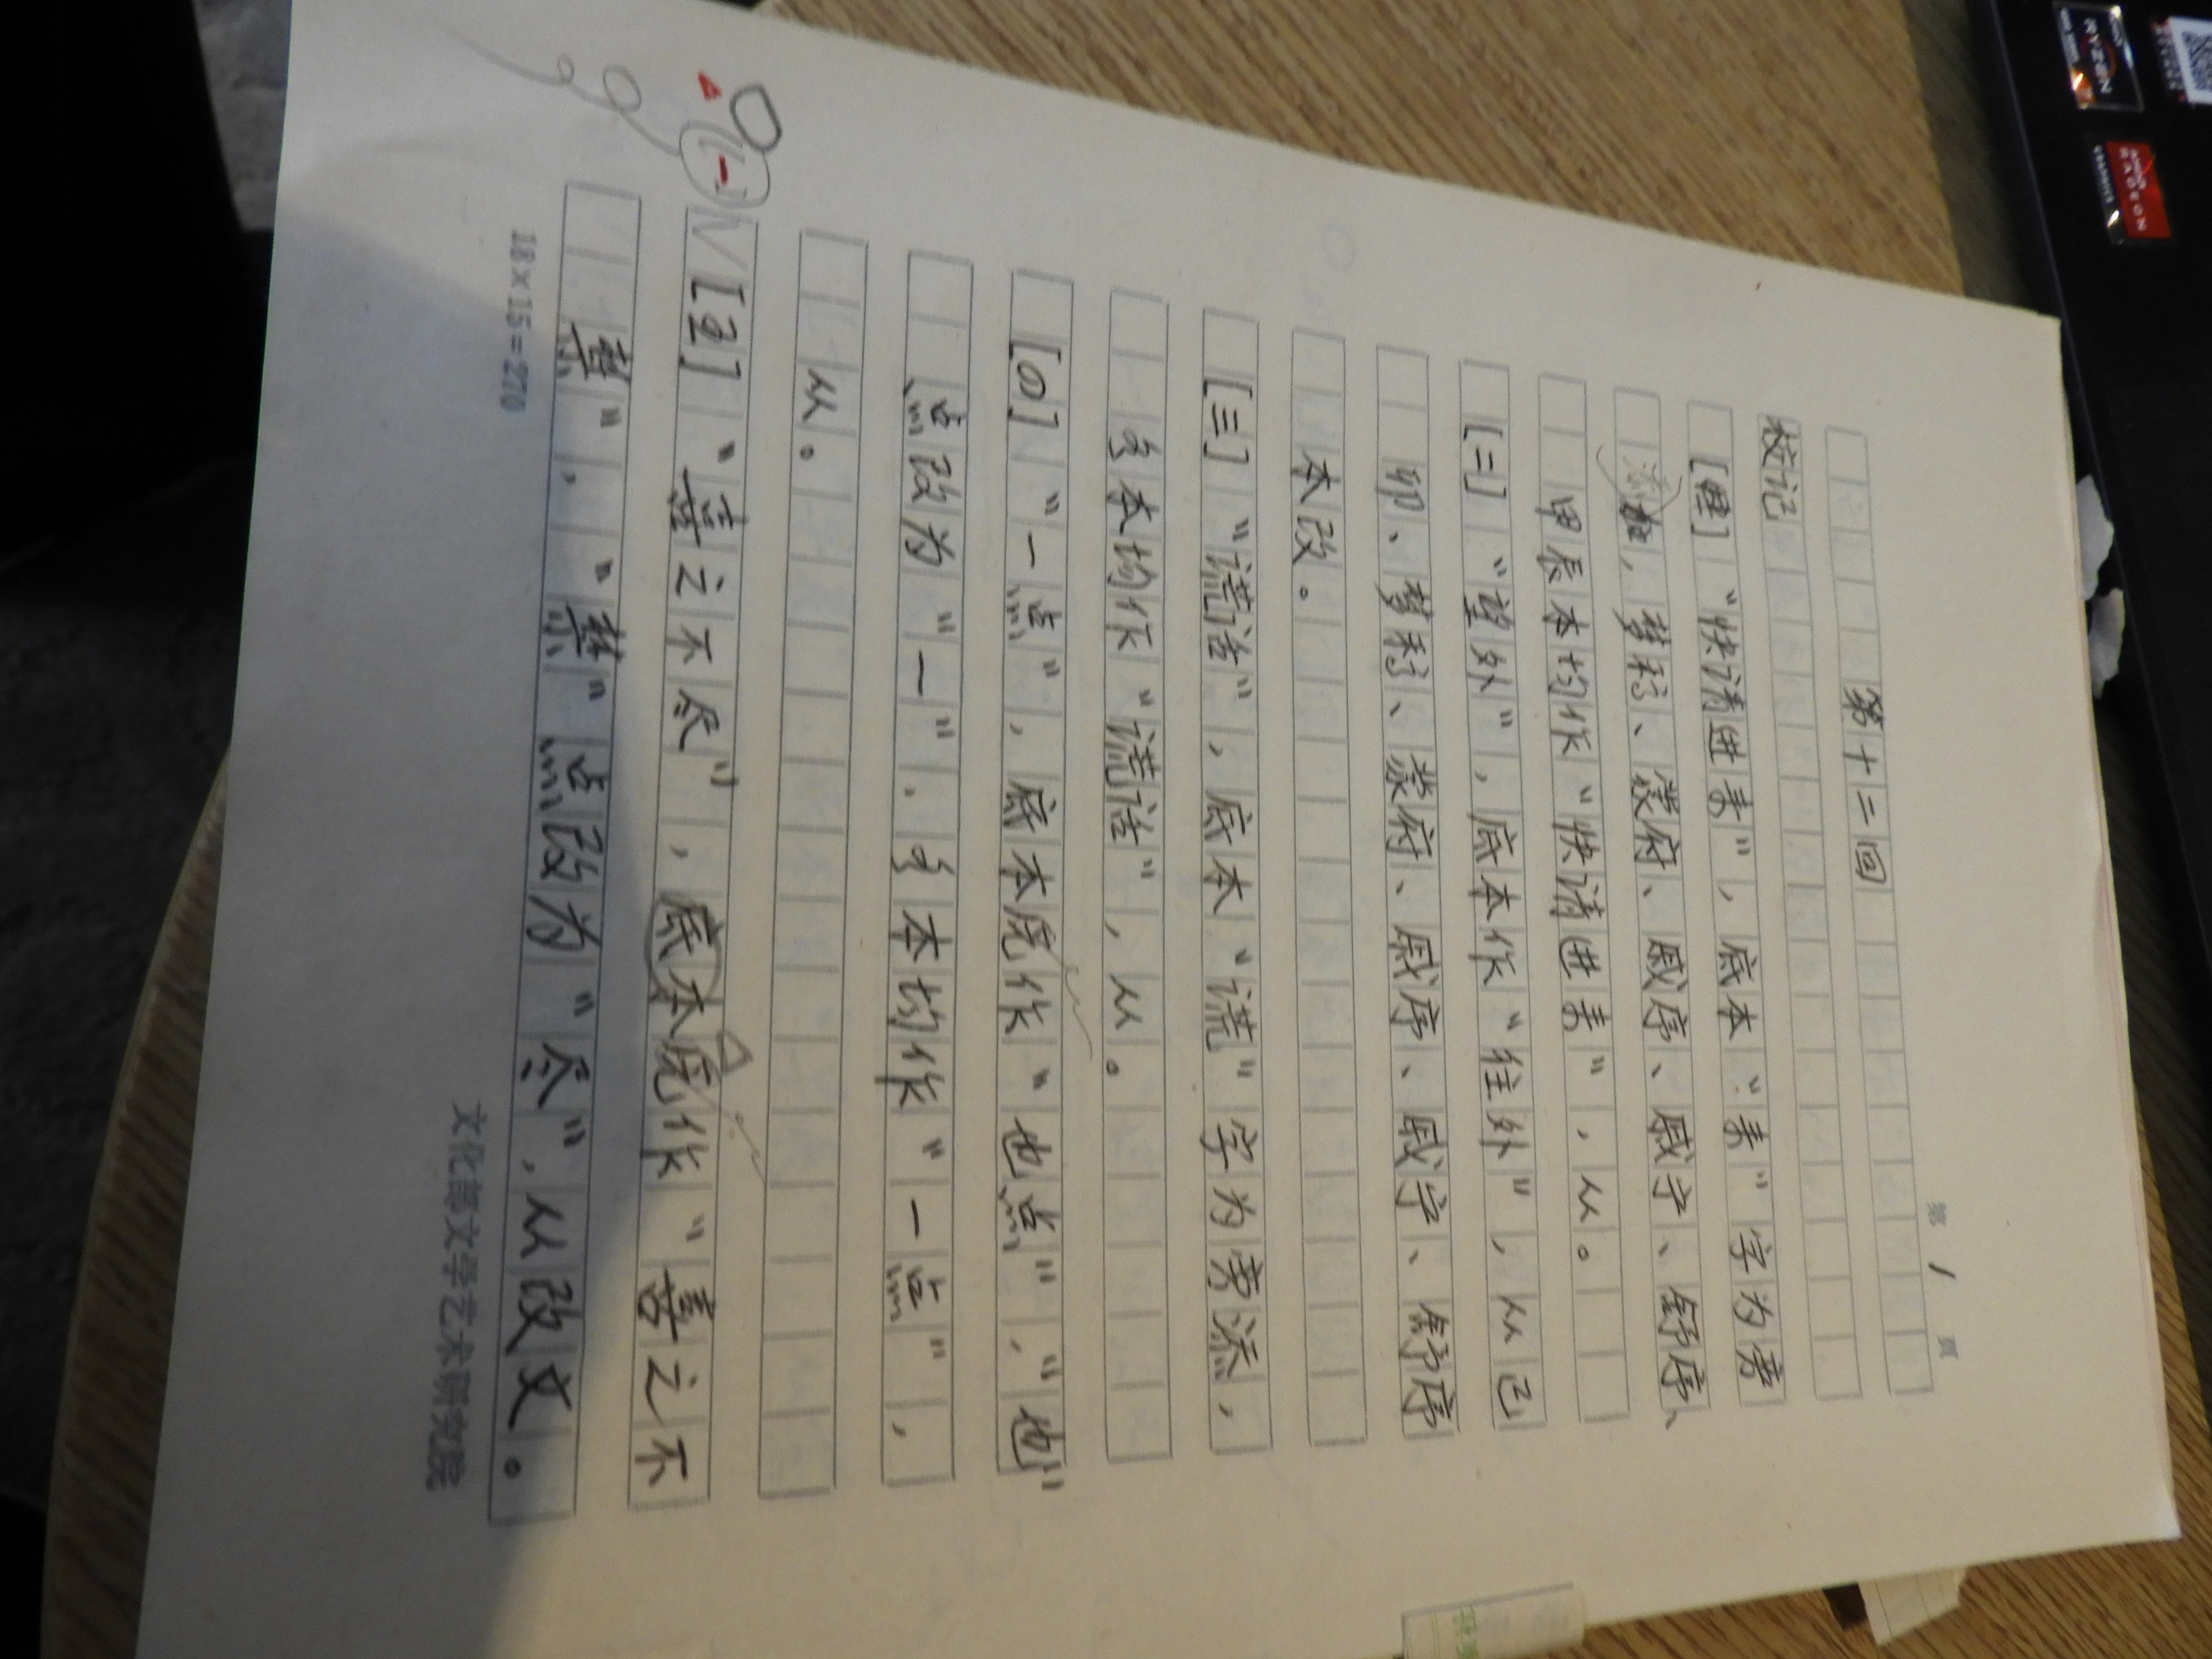 第 1 页
第十二回
校记
“快请进来”，底本“来”字为旁
添，梦稿、蒙府、戚序、戚宁、舒序、
甲辰本均作“快请进来”，从。
[二]“望外”，底本作“往外”，从己
卯、梦稿、蒙府、戚序、戚宁、舒序
本改。
[三]“谎话”，底本“谎”字为旁添，
多本均作“谎话”，从。
[四]“一点”，底本原作“也点”，“也”
点改为“一”．多本均作“一点”，
从。
[五]“喜之不尽”，底本原作“喜之不
禁”，“禁”点改为“尽”，从改文。
18×15=270
文化部文学艺术研究院
RYZEN
AMD
RADEON
GRAPHICS